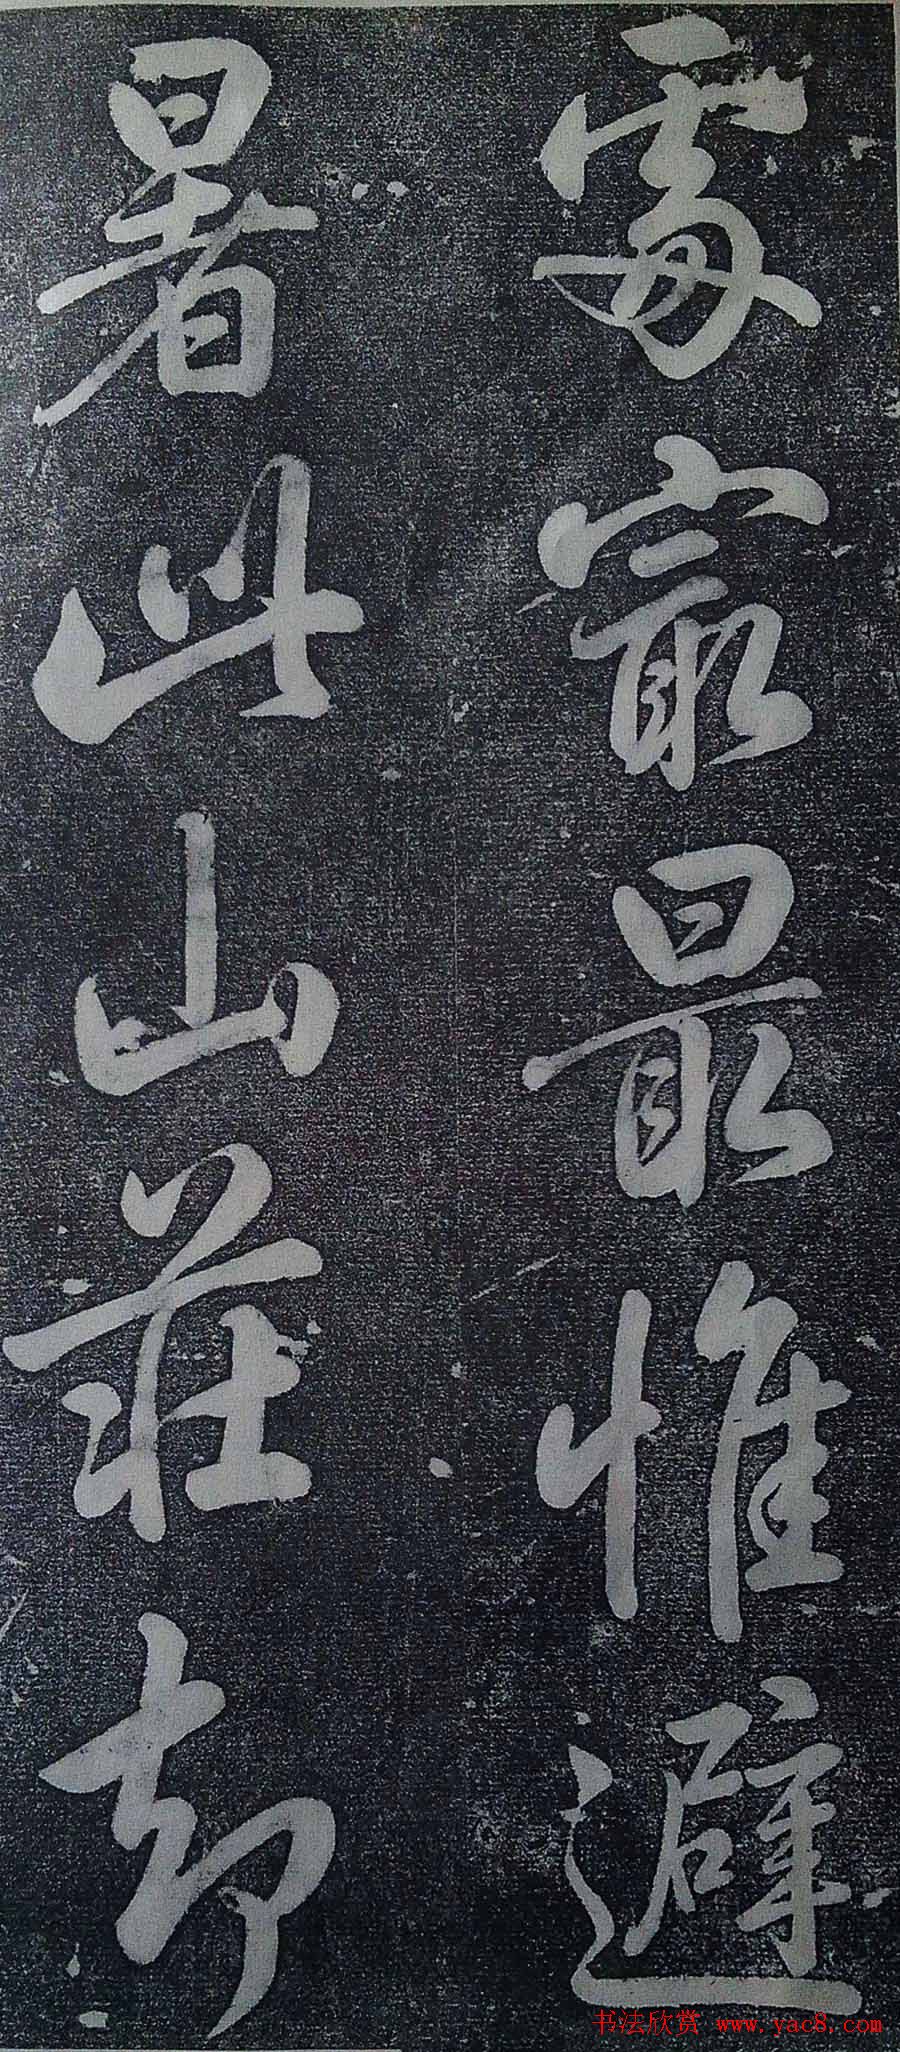 最惟避
暑此山莊却
书法欣赏 www.yac8.com